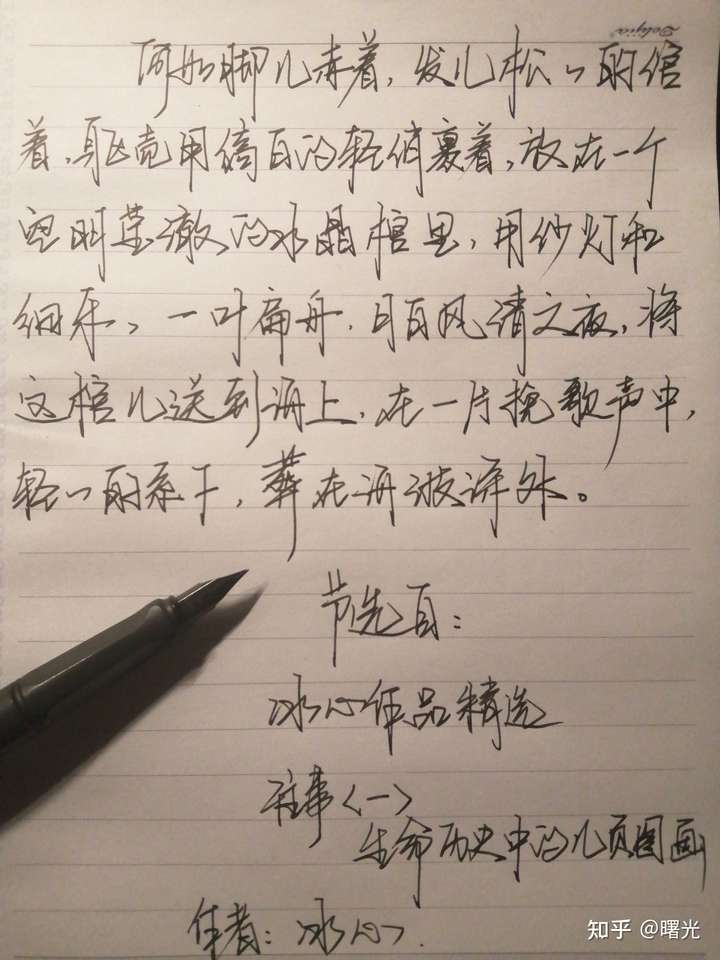 何如脚儿赤着,发儿松々的绾
着,躯壳用缟白的轻绡裹着,放在一个
空明莹澈的水晶棺里,用纱灯和
细乐,一叶扁舟,月白风清之夜,将
这棺儿送到海上,在一片挽歌声中,
轻々的系下,葬在海波深处。
节选自:
冰心作品精选
往事〈一〉
生命历史中的几页图画
作者:冰心.
知乎 @曙光